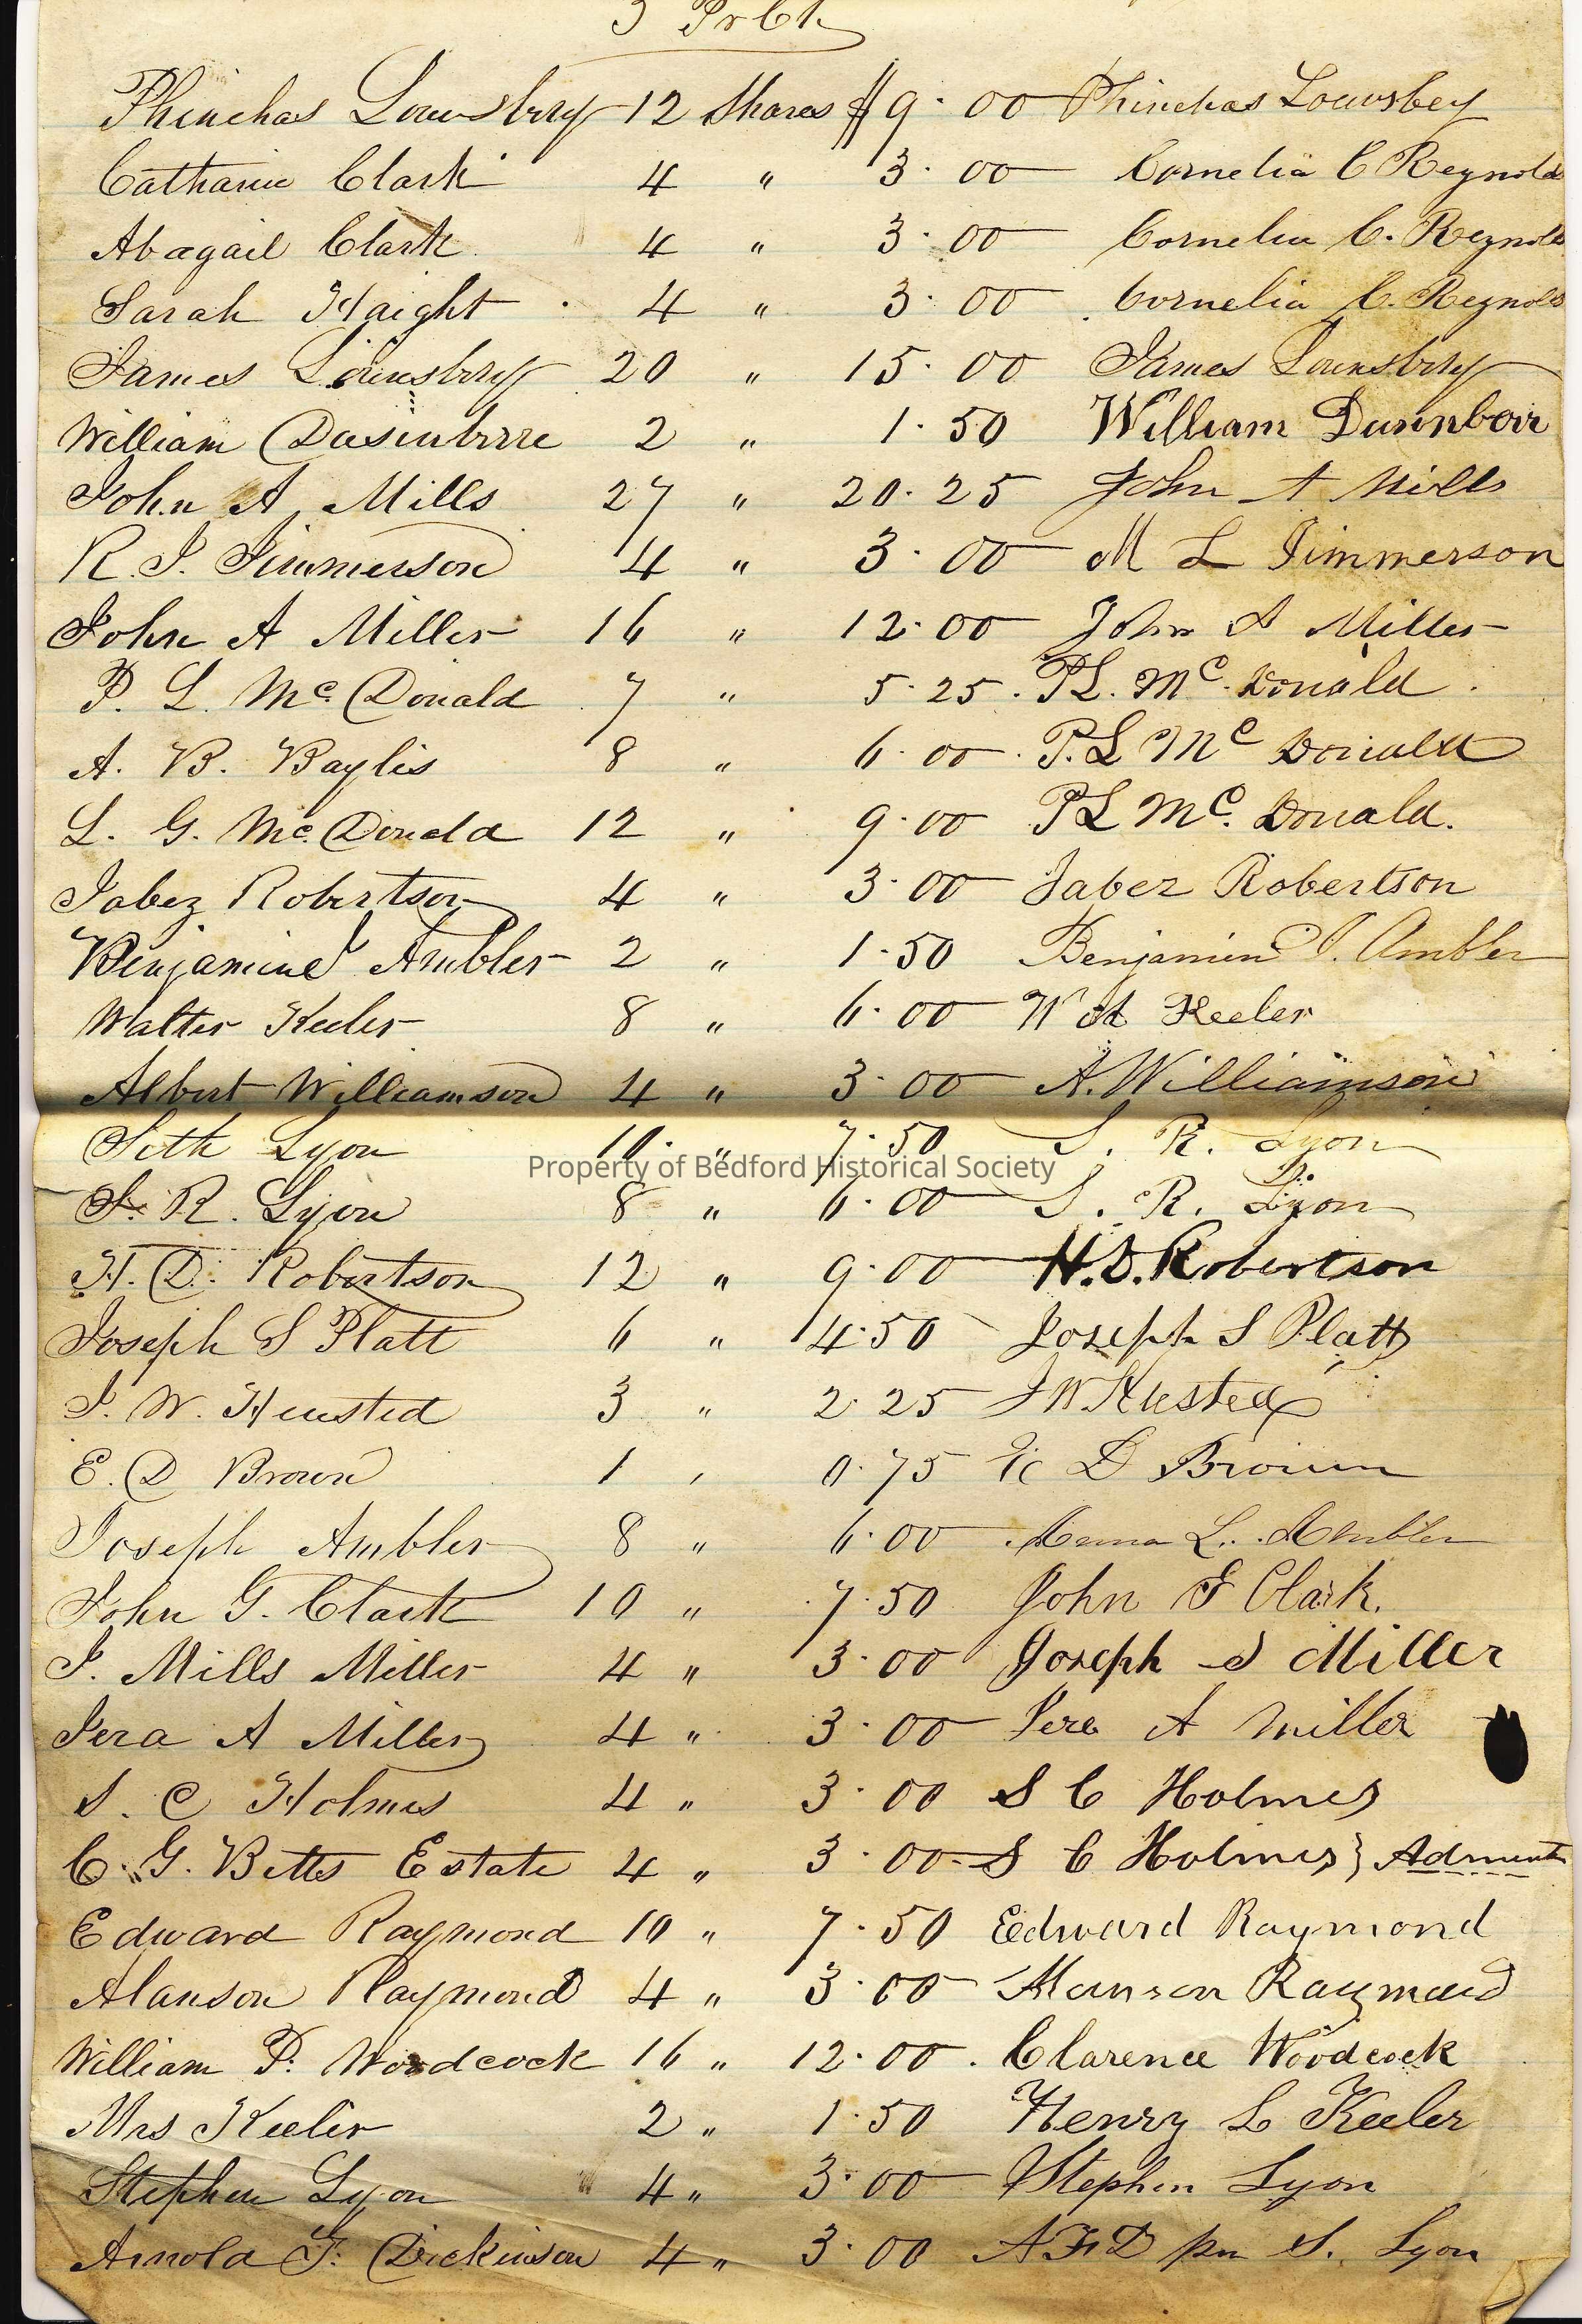 3 Pr Ct
Phinehas Lounsbery 12 Shares $9.00 Phinehas Lounsbery
Catharine Clark 4 " 3.00 Cornelia C Reynolds
Abagail Clark 4 " 3.00 Cornelia C. Reynolds
Sarah Haight 4 " 3.00 Cornelia C. Reynolds
James Lounsbery 20 " 15.00 James Lounsbery
William 2 " 1.50 William
John A. Mills 27 " 20.25 John A Mills
R. J. Jimmerson 4 " 3.00 M L Jimmerson
John A Miller 16 " 12.00 John A Miller
P. L. Mc Donald 7 " 5.25 P.L. Mc Donald
A. B. Baylis 8 " 6.00 P.L Mc Donald
L. G. Mc Donald 12 " 9.00 P L Mc Donald.
Jabez Robertson 4 " 3.00 Jabez Robertson
Ambler 2 " 1.50 Benjamin I. Ambler
Walter Keeler 8 " 6.00 Keeler
Albert Williamson 4 " 3.00 A. Williamson
Seth Lyon 10 " 7.50 S. R. Lyon
Property of Bedford Historical Society
S. R. Lyon 8 " 6.00 S. R. Lyon
H. D. Robertson 12 " 9.00 H.D. Robertson
Joseph S Platt 6 " 4.50 Joseph S Platt
J. W. Husted 3 " 2.25 J W Husted
E. D Brown 1 " 0.75 E D Brown
Joseph Ambler 8 " 6.00 L. Ambler
John G. Clark 10 " 7.50 John G Clark.
J. Mills Miller 4 " 3.00 Joseph Miller
Jera A Miller 4 " 3.00 Jera A Miller
S. C Holmes 4 " 3.00 S C Holmes
C. G. Betts Estate 4 " 3.00 S C Holmes }
Edward Raymond 10 " 7.50 Edward Raymond
Alanson Raymond 4 " 3.00 Alanson Raymond
William P. Woodcock 16 " 12.00 Clarence Woodcock
Mrs Keeler 2 " 1.50 Henry L Keeler
Stephen Lyon 4 " 3.00 Stephen Lyon
Arnold F. Dickinson 4 " 3.00 A F D pr S. Lyon